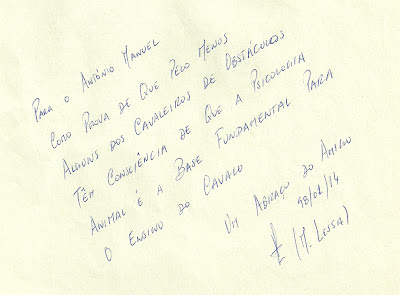 Para o António Manuel
Como Prova de Que Pelo Menos
Alguns dos Cavaleiros de Obstáculos
Têm Consciência de Que a Psicologia
Animal é a Base Fundamental Para
O Ensino do Cavalo
Um Abraço do Amigo
98/01/14
(M. Lessa)